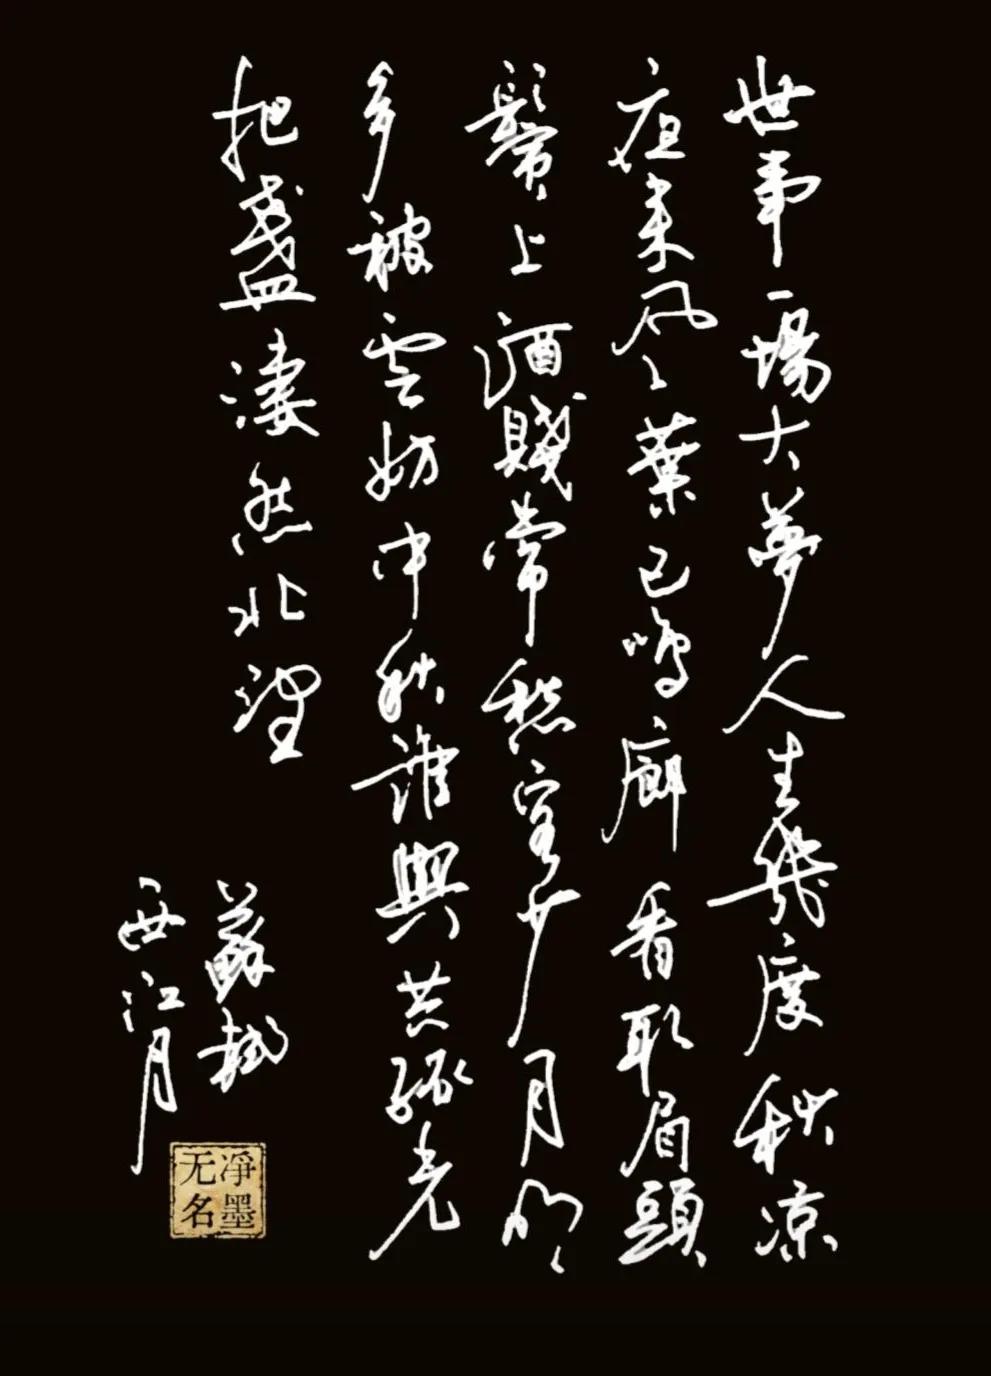 世事一場大夢人生幾度秋凉
夜来风葉已鳴廊看取眉頭
鬢上酒賤常愁客少月明
多被雲妨中秋誰與共孤光
把盞淒然北望
蘇軾
西江月
凈墨
无名